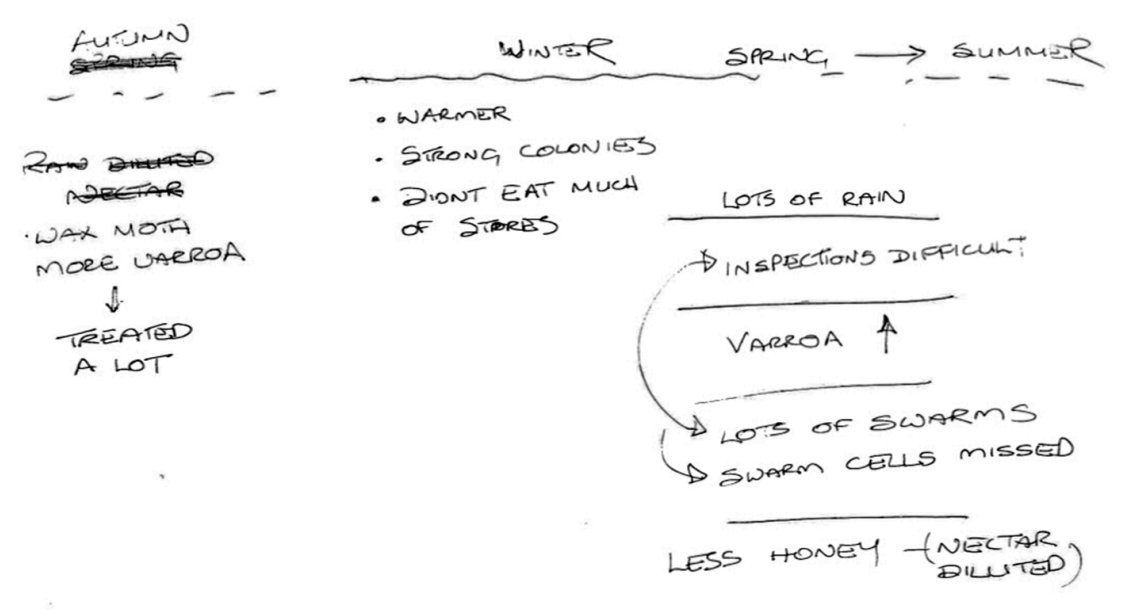 AUTUMN
SPRING
WINTER
SPRING → SUMMER
RAW DILUTED
NECTAR
· WAX MOTH
MORE VARROA
↓
TREATED
A LOT
• WARMER
• STRONG COLONIES
• DIDNT EAT MUCH
OF STORES
LOTS OF RAIN
INSPECTIONS DIFFICULT
VARROA ↑
LOTS OF SWARMS
SWARM CELLS MISSED
LESS HONEY – (NECTAR
DILLUTED)